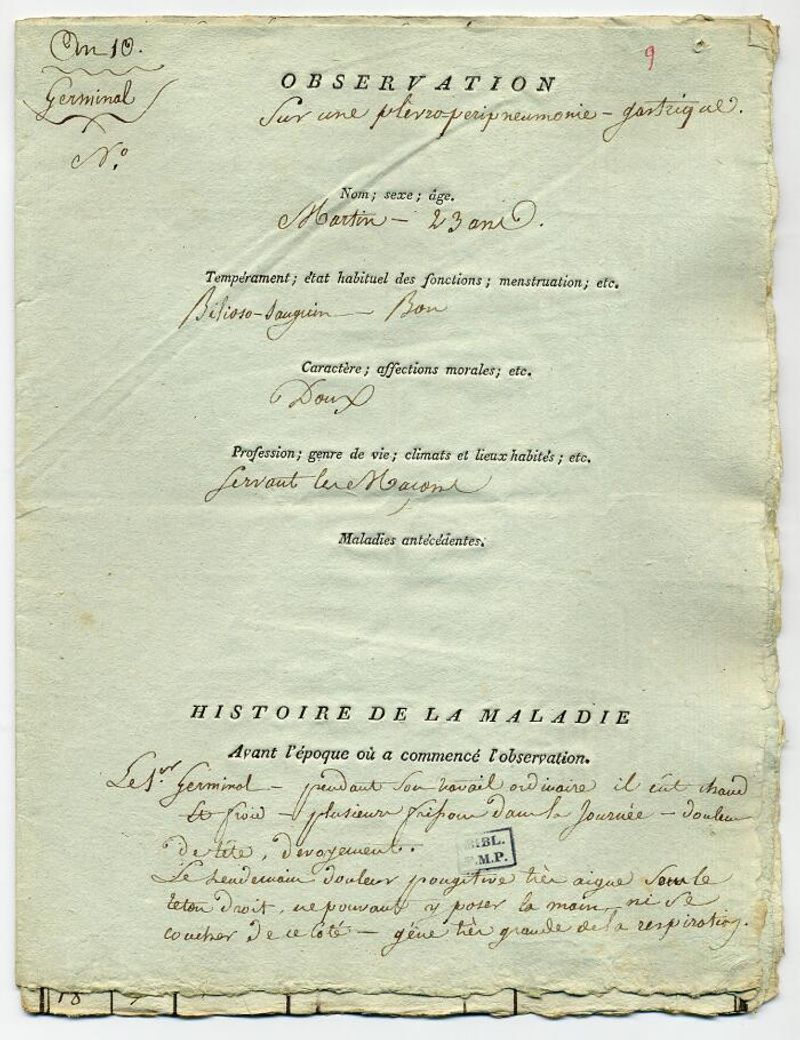 An 10.
Germinal
N.º
9
OBSERVATION
Sur une plévro-peripneumonie - gastrique.
Nom; sexe; âge.
Martin - 23 ans.
Tempérament; état habituel des fonctions; menstruation; etc.
Bilioso-Sanguin - Bon
Caractère; affections morales; etc.
Doux
Profession; genre de vie; climats et lieux habités; etc.
Servant les Maçons
Maladies antécédentes.
HISTOIRE DE LA MALADIE
Avant l'époque où a commencé l'observation.
Le 1.er Germinal - pendant son travail ordinaire il eût chaud
et froid - plusieurs frissons dans la Journée - douleur
de tête, devoyement.
BIBL.
F.M.P.
Le lendemain douleur pongitive très aigue sous le
teton droit, ne pouvant y poser la main, ni se
coucher de ce côté - gêne très grande de la respiration.
18